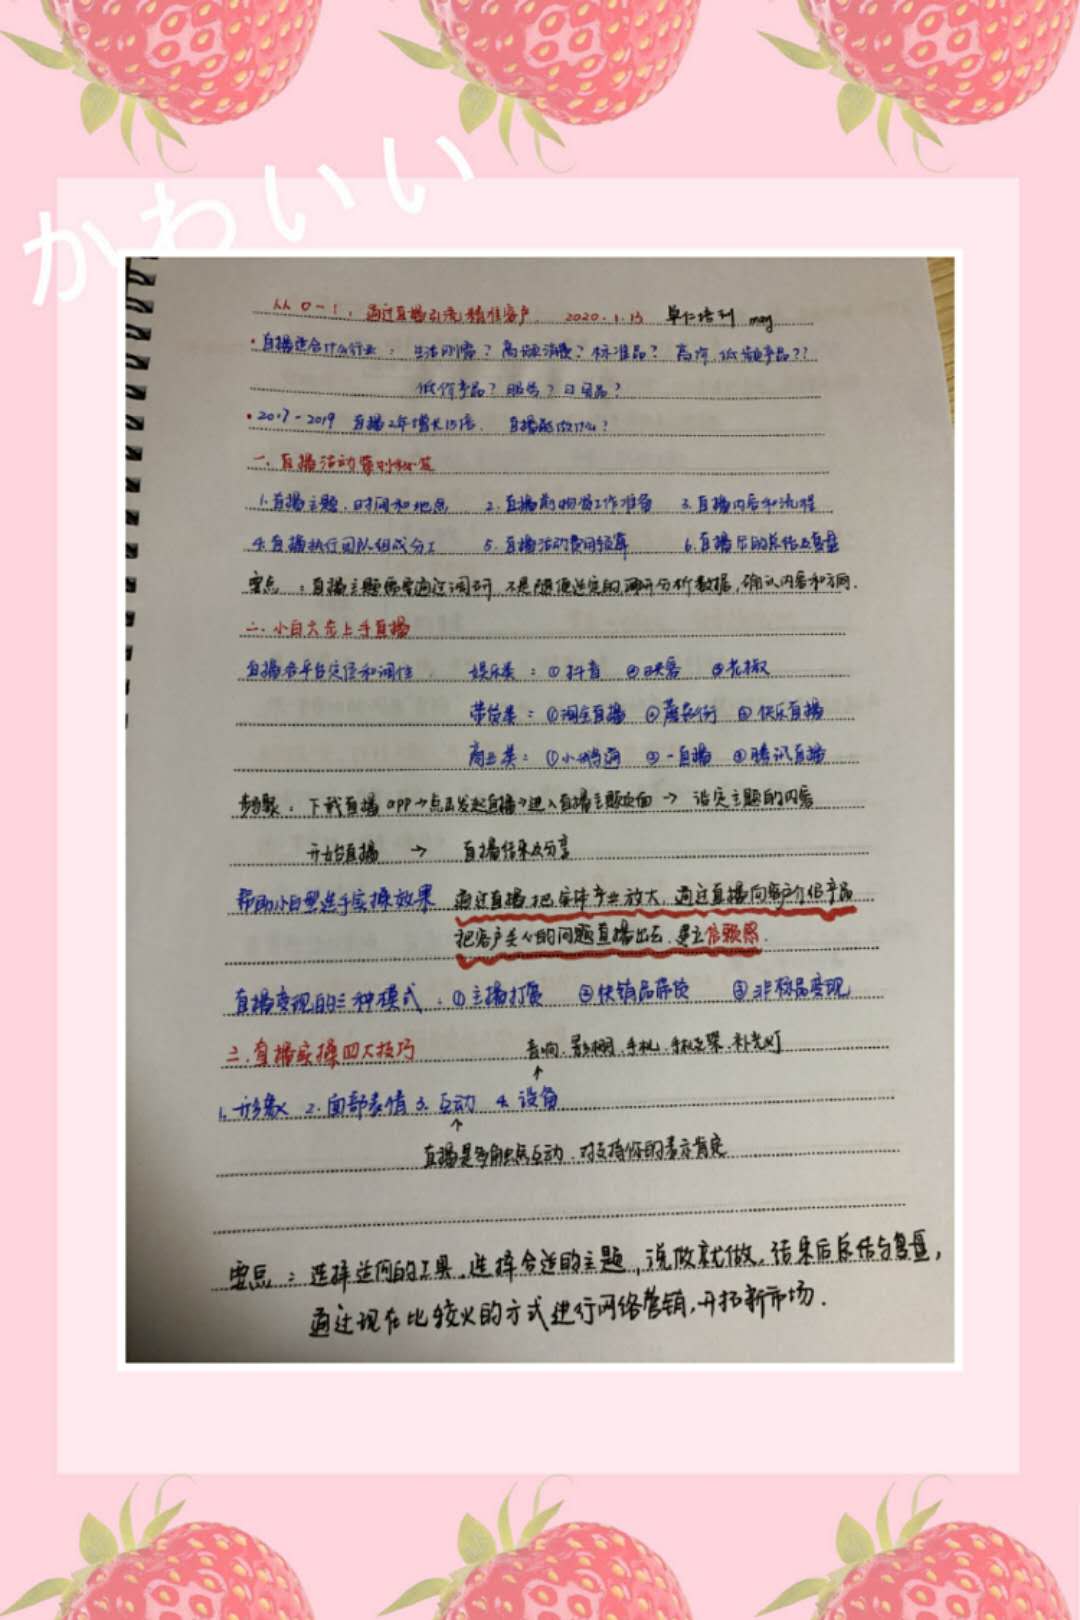 かわいい
从0-1，通过直播引流精准客户 2020.1.13 单仁培训 may
·直播适合什么行业：生活刚需？高频消费？标准品？高价、低频产品？？
低价产品？服务？日用品？
·2017-2019 直播2年增长15倍. 直播能做什么？
一、直播活动策划秘笈
1.直播主题、时间和地点 2.直播前物资工作准备 3.直播内容和流程
4.直播执行团队组成分工 5.直播活动费用预算 6.直播后的总结及复盘
要点：直播主题需要通过调研，不是随便选定的，调研分析数据，确认内容和方向.
二、小白六步上手直播
直播各平台定位和调性 娱乐类：①抖音 ②映客 ③花椒
带货类：①淘宝直播 ②蘑菇街 ③快乐直播
商业类：①小鹅通 ②一直播 ③腾讯直播
步骤：下载直播app→点击发起直播→进入直播主题页面→设定主题的内容
开始直播 → 直播结束及分享
帮助小白型选手实操效果 通过直播把实体产业放大，通过直播向客户介绍产品
把客户关心的问题直播出去，建立信赖感.
直播变现的三种模式：①主播打赏 ②快销品带货 ③非标品变现
三.直播实操四大技巧 音响、影棚、手机、手机支架、补光灯
1.形象 2.面部表情 3.互动 4.设备
直播是多角度互动、对支持你的表示肯定
要点：选择适网的工具，选择合适的主题，说做就做，结束后总结与复盘，
通过现在比较火的方式进行网络营销，开拓新市场.